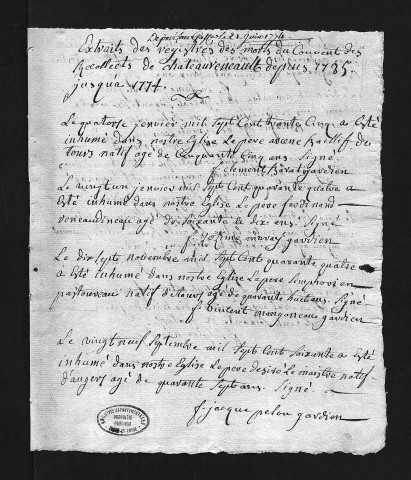 Deposé au Greffe le 21 Juin 1774
Extraits des registres des morts du Couvent des
Recollects de chateaureneault depuis 1735
jusqu'a 1774.
Le quatorse janvier mil sept Cent trante Cinq a Esté
inhumé dans nostre Eglise Le pere Baillif de
tours natif agé de Cinquante Cinq ans. Signé
f. clement gardien
Le vingt un janvier mil Sept Cent quarante quatre a
Esté inhumé dans nostre Eglise Le pere ferdinand
agé de soixante et dix ans. Signé
f. gardien
Le dix Sept novembre mil Sept Cent quarante quatre
a Esté inhumé dans nostre Eglise Le pere Simphorien
pastoureau natif de tours agé de quarante huit ans. Signé
f. vincent mangoneau gardien
Le vingt neuf Septembre mil Sept Cent Soixante a Esté
inhumé dans nostre Eglise Le pere desiré Le maistre natif
d'angers agé de quarante Sept ans. Signé
f. jacque pelou gardien